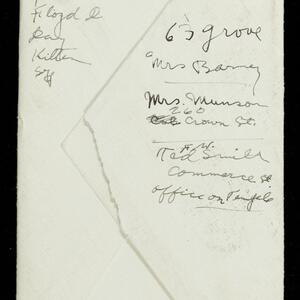 Floyd
65 grove
"Mrs Barney
Mrs. Munson
260
Crown St.
F. W.
Ted Smith
Commerce St
office on Temple